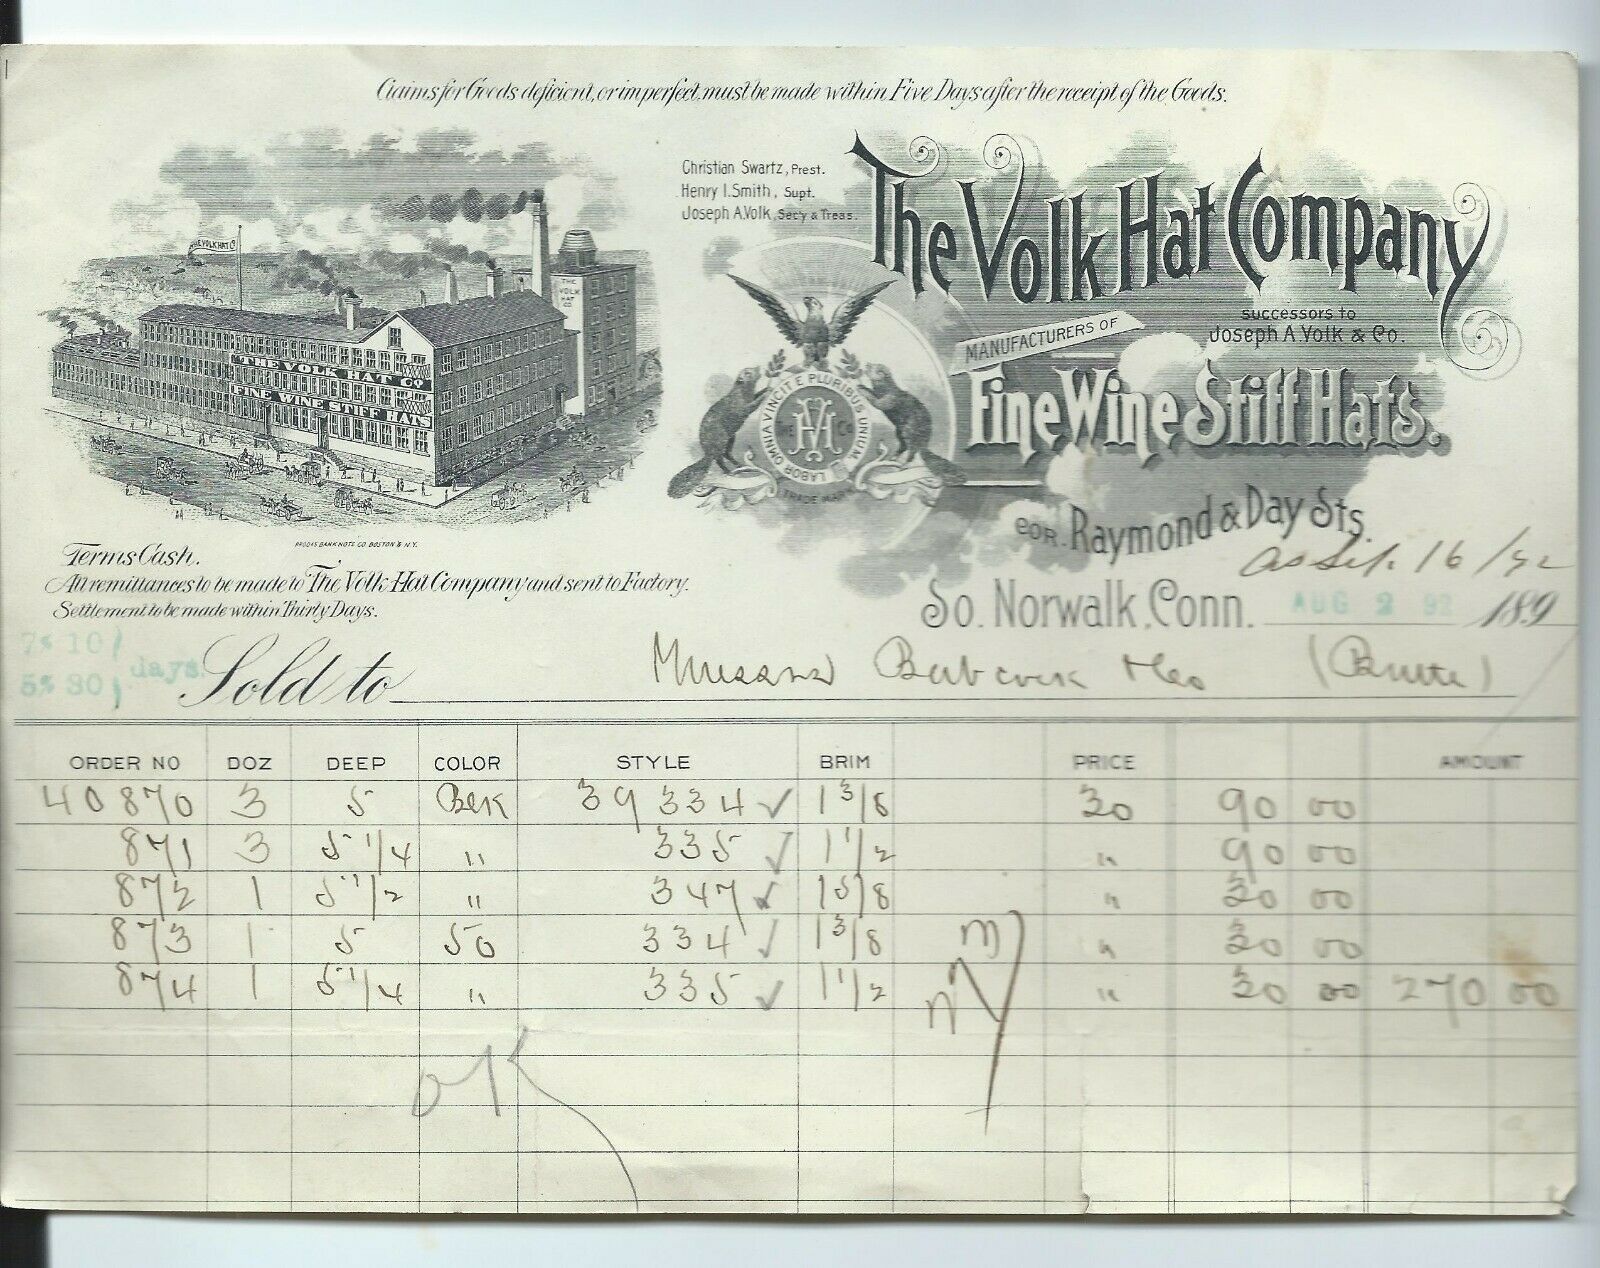 Claims for Goods deficient, or imperfect must be made within Five Days after the receipt of the Goods.
Christian Swartz, Prest.
Henry I. Smith, Supt.
Joseph A. Volk, Sec'y & Treas.
The Volk Hat Company
successors to
Joseph A. Volk & Co.
MANUFACTURERS OF
Fine Wine Stiff Hats.
THE VOLK HAT Co
THE VOLK HAT CO.
THE VOLK HAT CO.
FINE WINE STIFF HATS
LABOR OMNIA VINCIT E PLURIBUS UNIUM
THE VH Co
TRADE MARK
COR. Raymond & Day Sts.
BANK NOTE CO. BOSTON & N.Y.
Terms Cash.
All remittances to be made to The Volk Hat Company and sent to Factory.
Settlement to be made within Thirty Days.
as Sep. 16/92
So. Norwalk, Conn. AUG 2 92 189
7% 10/
5% 30/ days.
Sold to Babcock (Butte)
ORDER NO DOZ DEEP COLOR STYLE BRIM PRICE AMOUNT
40870 3 5 Blk 39334 ✓ 1 3/8 30 90 00
871 3 5 1/4 " 335 ✓ 1 1/2 " 90 00
872 1 5 1/2 " 347 ✓ 1 5/8 " 30 00
873 1 5 50 334 ✓ 1 3/8 " 30 00
874 1 5 1/4 " 335 ✓ 1 1/2 " 30 00 270 00
OK